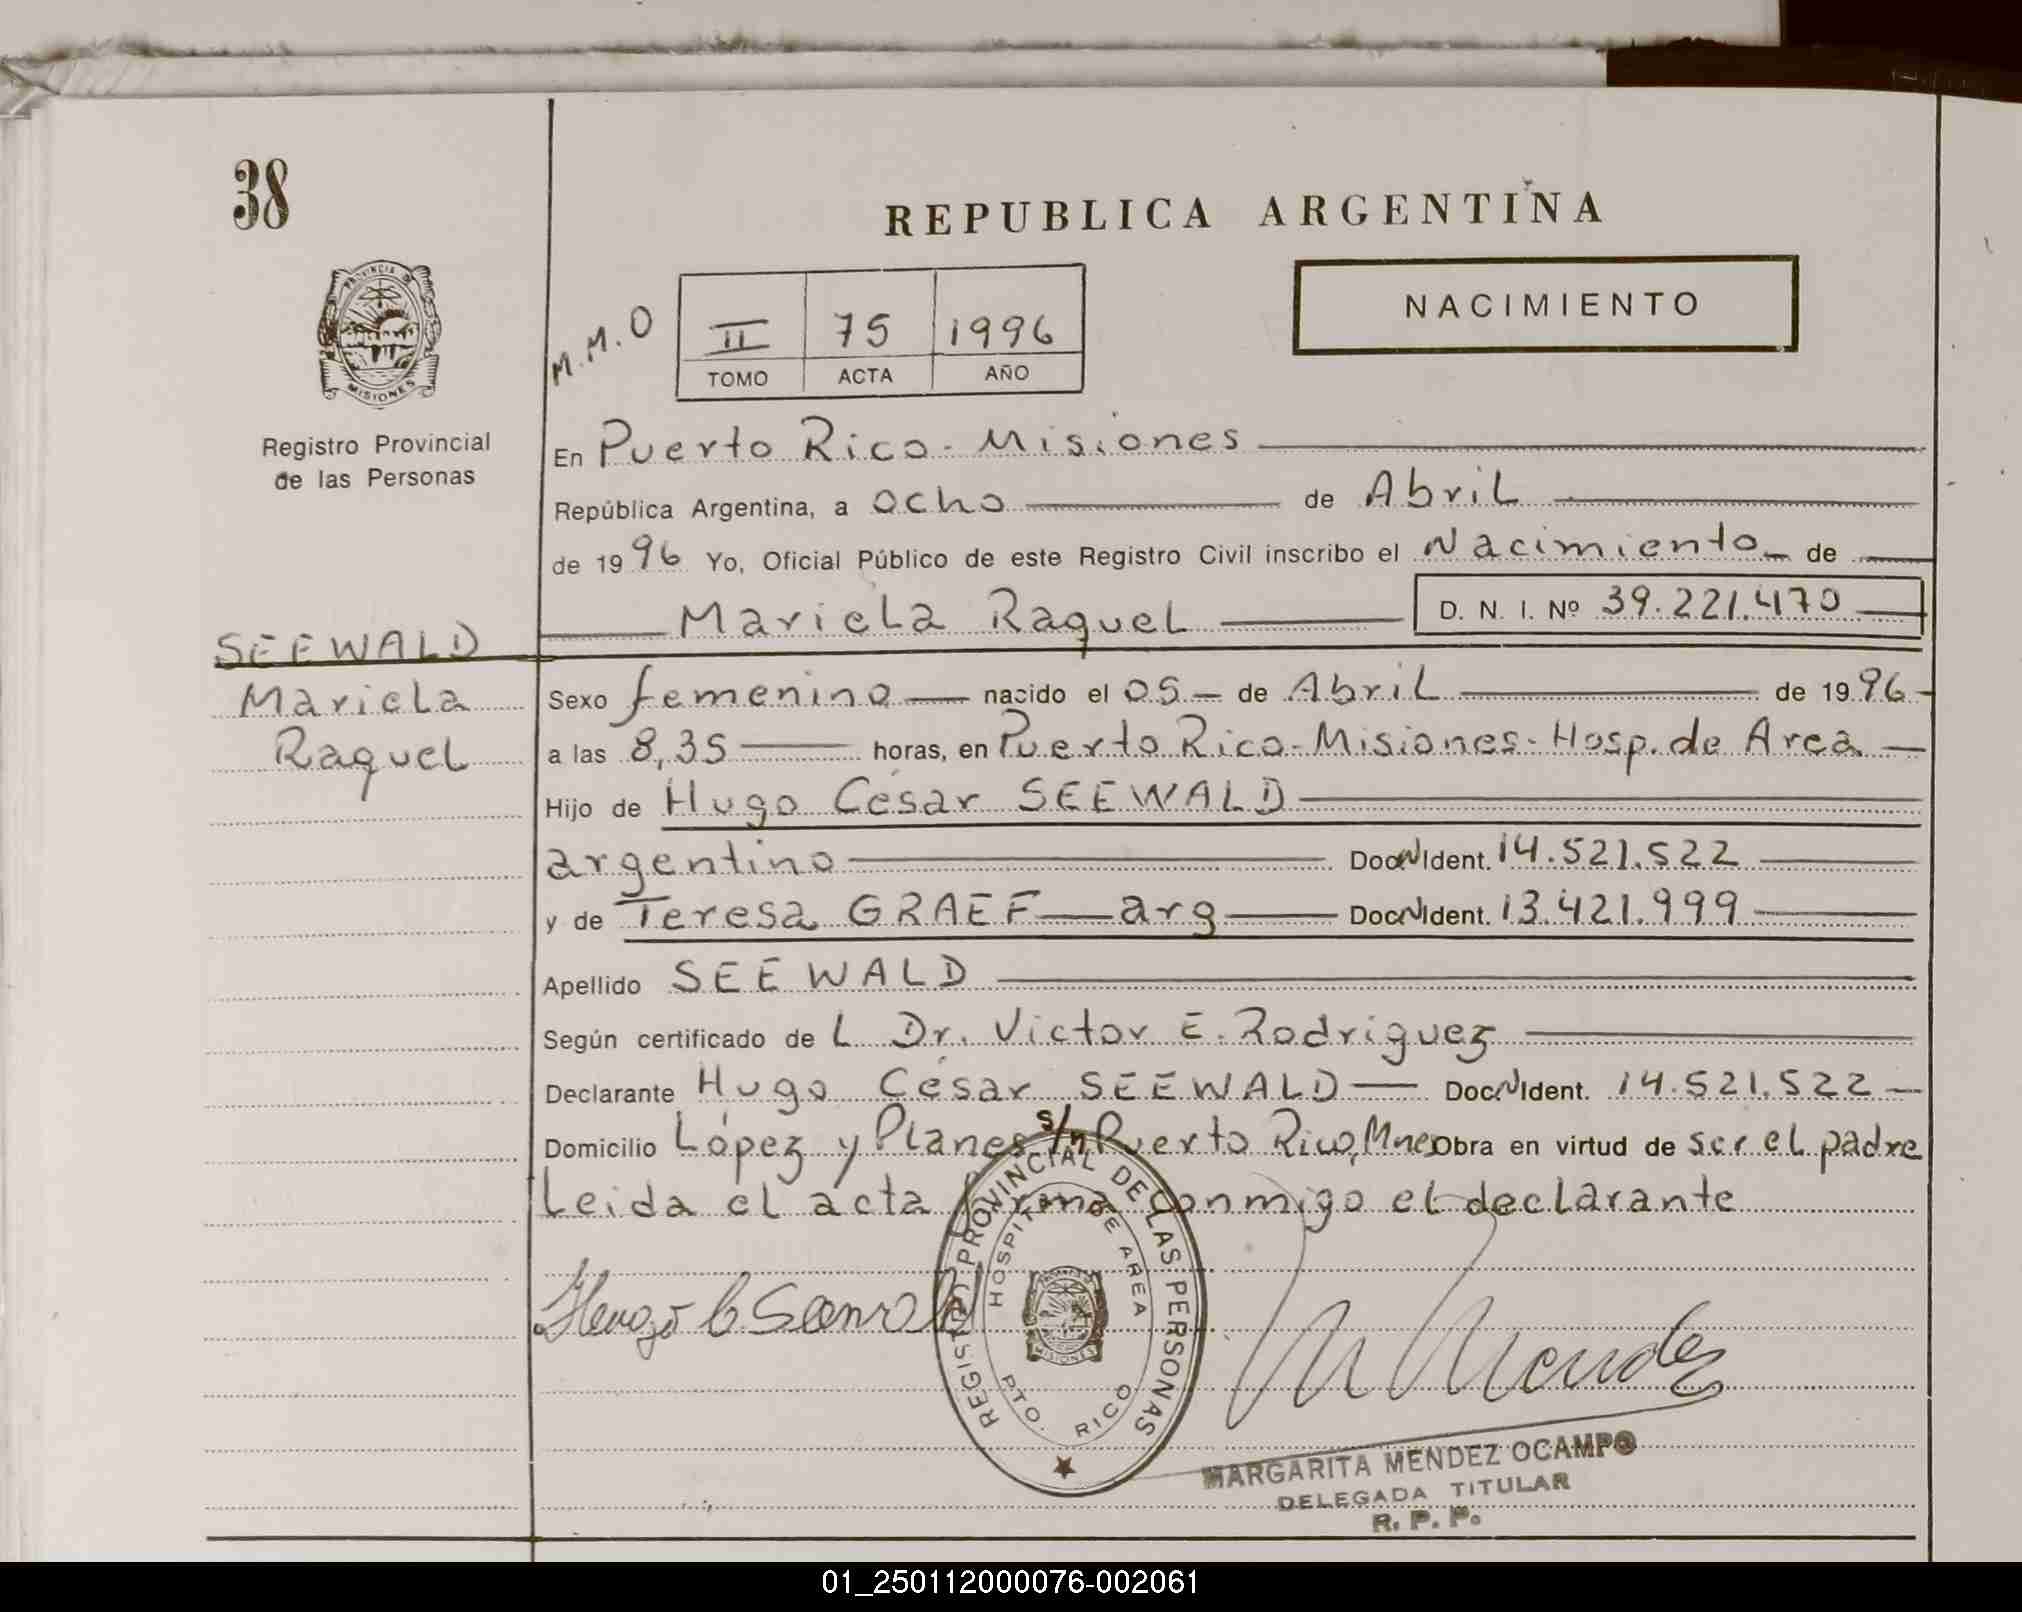 38
REPUBLICA ARGENTINA
NACIMIENTO
M.M.O
II 75 1996
TOMO ACTA AÑO
PROVINCIA DE MISIONES
Registro Provincial
de las Personas
En Puerto Rico - Misiones
República Argentina, a ocho de Abril
de 1996 Yo, Oficial Público de este Registro Civil inscribo el Nacimiento de
Mariela Raquel D. N. I. Nº 39.221.470
SEEWALD
Mariela
Raquel
Sexo femenino nacido el 05 de Abril de 1996
a las 8,35 horas, en Puerto Rico - Misiones - Hosp. de Area
Hijo de Hugo César SEEWALD
argentino Doc. Ident. 14.521.522
y de Teresa GRAEF arg Doc. Ident. 13.421.999
Apellido SEEWALD
Según certificado de L Dr. Victor E. Rodriguez
Declarante Hugo César SEEWALD Doc. Ident. 14.521.522
Domicilio López y Planes s/n Puerto Rico, Mnes Obra en virtud de ser el padre
Leida el acta firma conmigo el declarante
REGISTRO PROVINCIAL DE LAS PERSONAS
HOSPITAL DE AREA
MISIONES
PTO. RICO
MARGARITA MENDEZ OCAMPO
DELEGADA TITULAR
R. P. P.
01_250112000076-002061